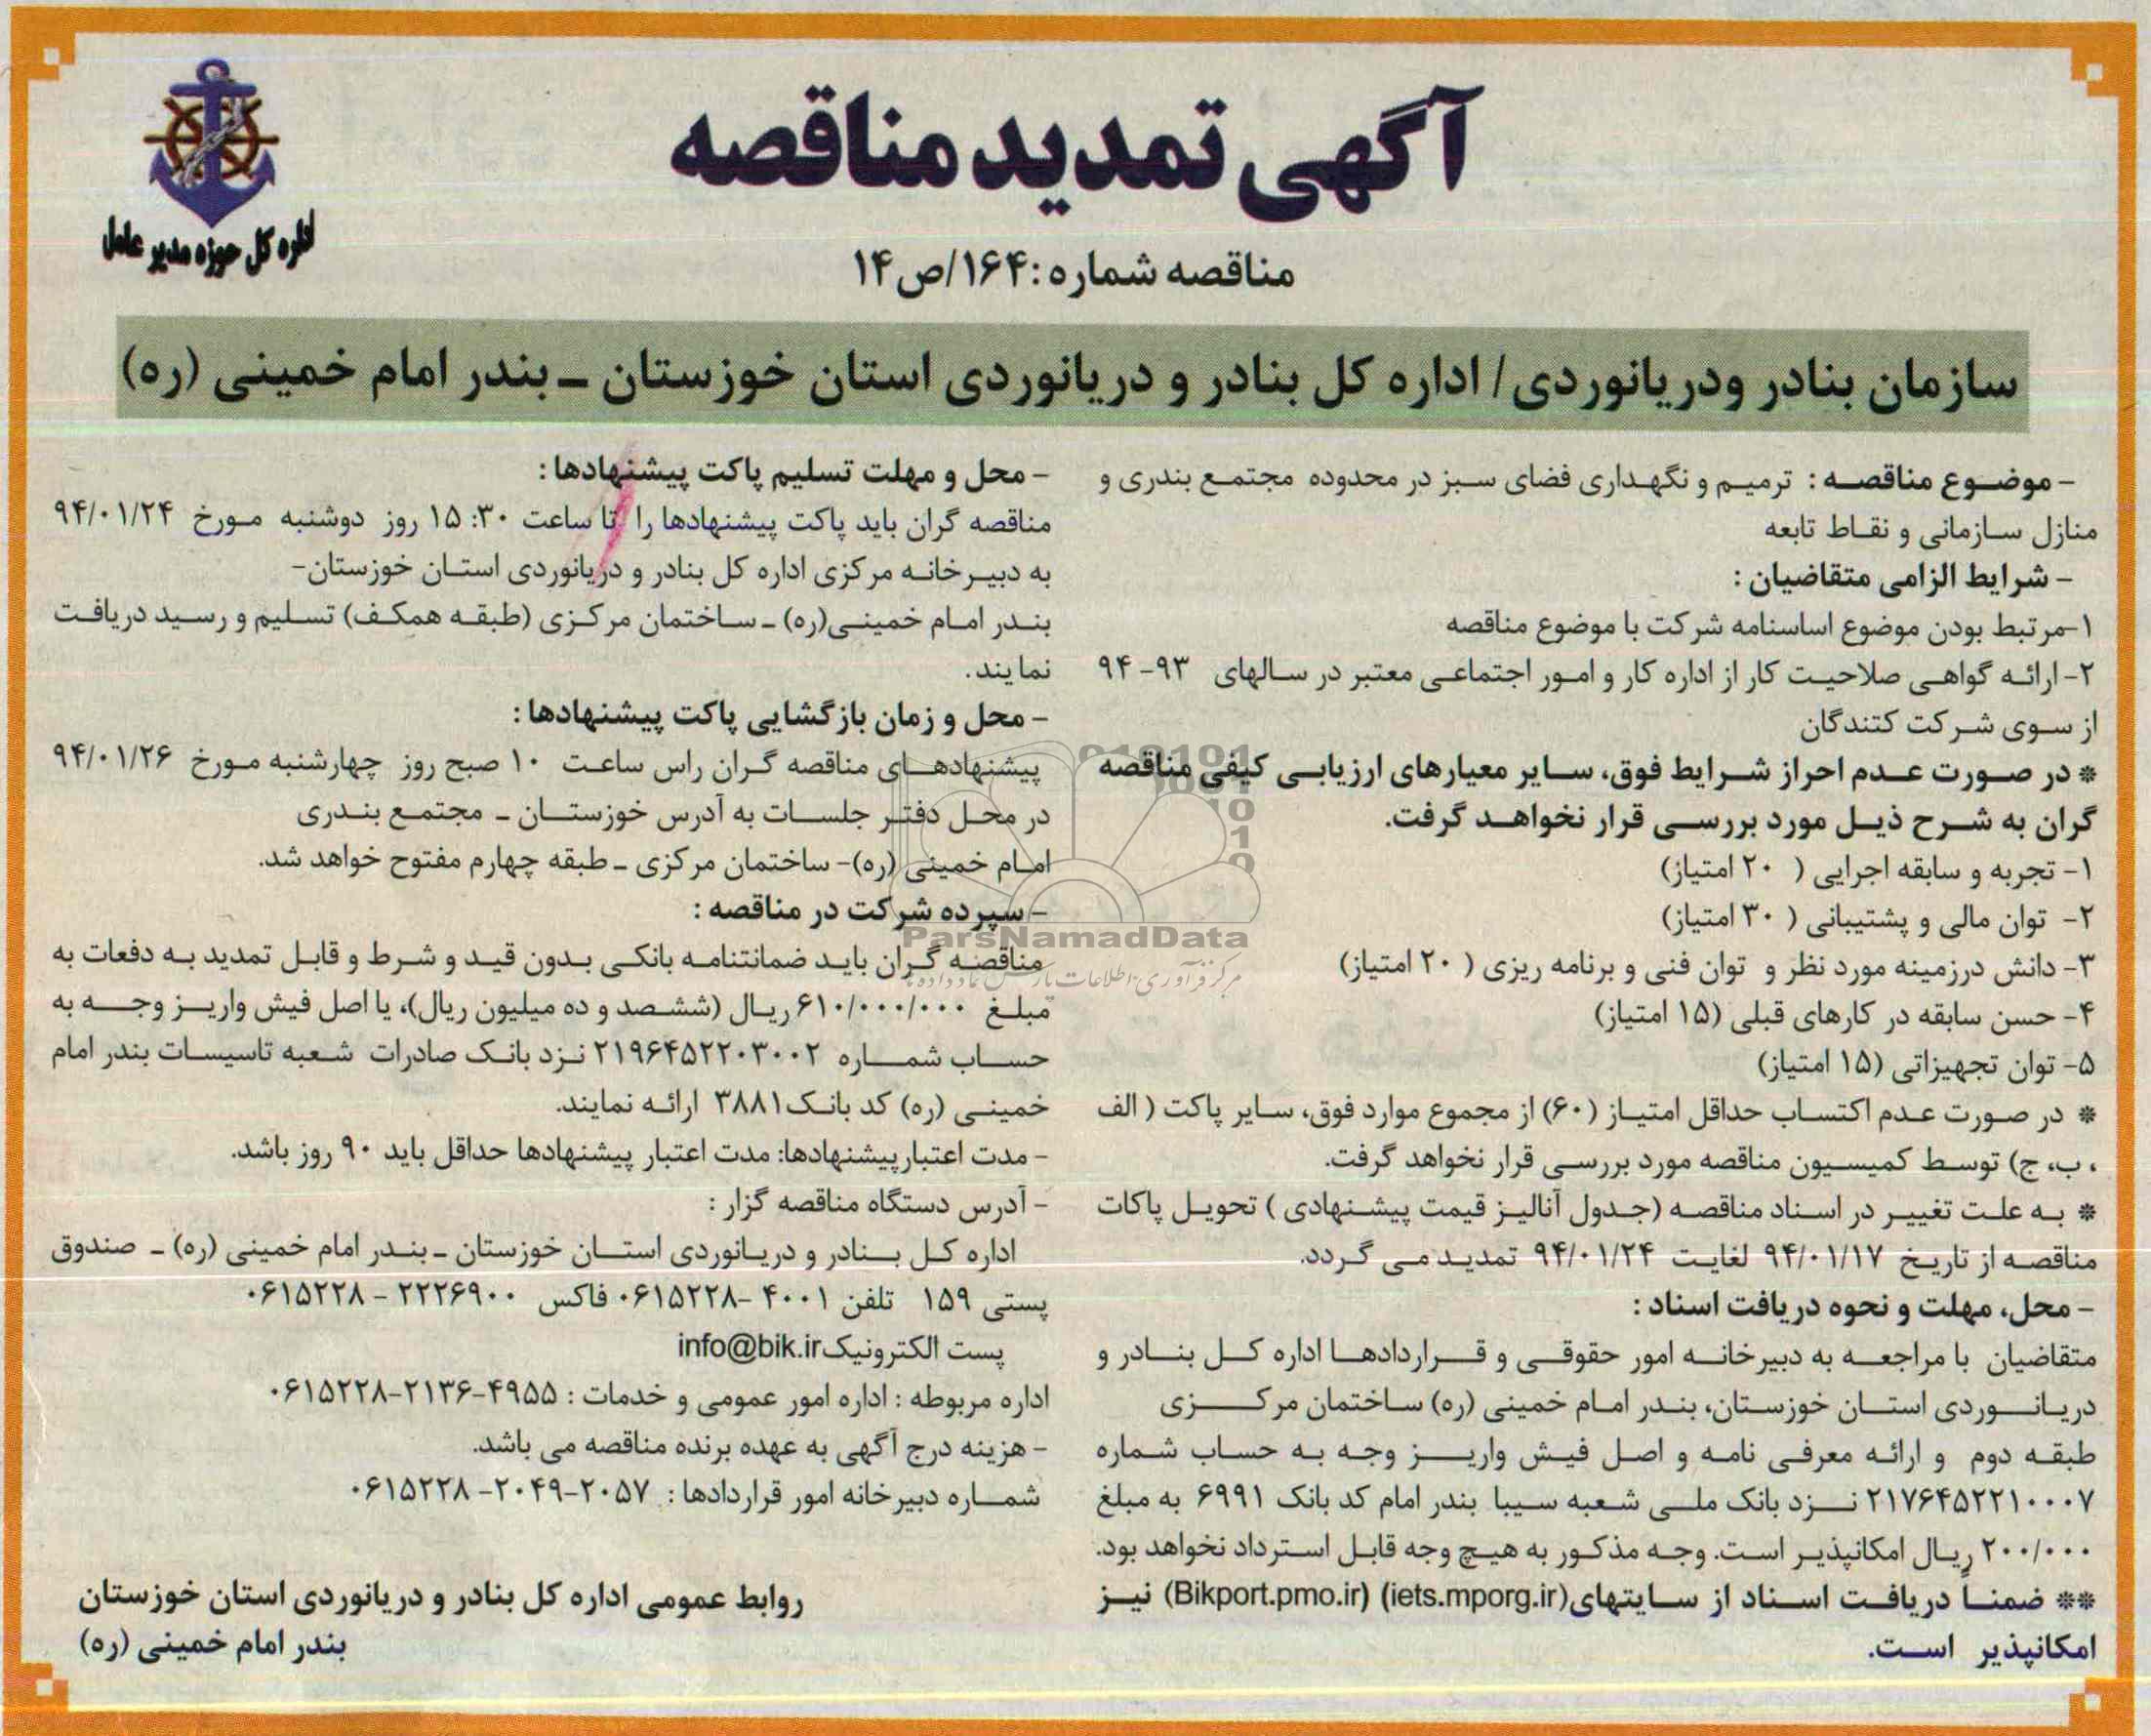 اداره کل حوزه مدیر عامل
آگهی تمدید مناقصه
مناقصه شماره: ۱۶۴/ص۱۴
سازمان بنادر ودریانوردی/ اداره کل بنادر و دریانوردی استان خوزستان ـ بندر امام خمینی (ره)
- موضوع مناقصه : ترمیم و نگهداری فضای سبز در محدوده مجتمع بندری و
منازل سازمانی و نقاط تابعه
- شرایط الزامی متقاضیان :
۱-مرتبط بودن موضوع اساسنامه شرکت با موضوع مناقصه
۲- ارائه گواهی صلاحیت کار از اداره کار و امور اجتماعی معتبر در سالهای ۹۳- ۹۴
از سوی شرکت کتندگان
* در صورت عدم احراز شرایط فوق، سایر معیارهای ارزیابی کیفی مناقصه
گران به شرح ذیل مورد بررسی قرار نخواهد گرفت.
۱- تجربه و سابقه اجرایی ( ۲۰ امتیاز)
۲- توان مالی و پشتیبانی ( ۳۰ امتیاز)
۳- دانش درزمینه مورد نظر و توان فنی و برنامه ریزی ( ۲۰ امتیاز)
۴- حسن سابقه در کارهای قبلی (۱۵ امتیاز)
۵- توان تجهیزاتی (۱۵ امتیاز)
* در صورت عدم اکتساب حداقل امتیاز (۶۰) از مجموع موارد فوق، سایر پاکت ( الف
، ب، ج) توسط کمیسیون مناقصه مورد بررسی قرار نخواهد گرفت.
* به علت تغییر در اسناد مناقصه (جدول آنالیز قیمت پیشنهادی ) تحویل پاکات
مناقصه از تاریخ ۹۴/۰۱/۱۷ لغایت ۹۴/۰۱/۲۴ تمدید می گردد.
- محل، مهلت و نحوه دریافت اسناد :
متقاضیان با مراجعه به دبیرخانه امور حقوقی و قراردادها اداره کل بنادر و
دریانوردی استان خوزستان، بندر امام خمینی (ره) ساختمان مرکزی
طبقه دوم و ارائه معرفی نامه و اصل فیش واریز وجه به حساب شماره
۲۱۷۶۴۵۲۲۱۰۰۰۷ نزد بانک ملی شعبه سیبا بندر امام کد بانک ۶۹۹۱ به مبلغ
۲۰۰/۰۰۰ ریال امکانپذیر است. وجه مذکور به هیچ وجه قابل استرداد نخواهد بود.
** ضمناً دریافت اسناد از سایتهای(iets.mporg.ir) (Bikport.pmo.ir) نیز
امکانپذیر است.
- محل و مهلت تسلیم پاکت پیشنهادها :
مناقصه گران باید پاکت پیشنهادها را تا ساعت ۱۵:۳۰ روز دوشنبه مورخ ۹۴/۰۱/۲۴
به دبیرخانه مرکزی اداره کل بنادر و دریانوردی استان خوزستان-
بندر امام خمینی(ره) ـ ساختمان مرکزی (طبقه همکف) تسلیم و رسید دریافت
نمایند.
- محل و زمان بازگشایی پاکت پیشنهادها :
پیشنهادهای مناقصه گران راس ساعت ۱۰ صبح روز چهارشنبه مورخ ۹۴/۰۱/۲۶
در محل دفتر جلسات به آدرس خوزستان ـ مجتمع بندری
امام خمینی (ره)- ساختمان مرکزی ـ طبقه چهارم مفتوح خواهد شد.
- سپرده شرکت در مناقصه :
مناقصه گران باید ضمانتنامه بانکی بدون قید و شرط و قابل تمدید به دفعات به
مبلغ ۶۱۰/۰۰۰/۰۰۰ ریال (ششصد و ده میلیون ریال)، یا اصل فیش واریز وجه به
حساب شماره ۲۱۹۶۴۵۲۲۰۳۰۰۲ نزد بانک صادرات شعبه تاسیسات بندر امام
خمینی (ره) کد بانک۳۸۸۱ ارائه نمایند.
- مدت اعتبارپیشنهادها: مدت اعتبار پیشنهادها حداقل باید ۹۰ روز باشد.
- آدرس دستگاه مناقصه گزار :
اداره کل بنادر و دریانوردی استان خوزستان ـ بندر امام خمینی (ره) ـ صندوق
پستی ۱۵۹ تلفن ۴۰۰۱ -۰۶۱۵۲۲۸ فاکس ۲۲۲۶۹۰۰ - ۰۶۱۵۲۲۸
پست الکترونیکinfo@bik.ir
اداره مربوطه : اداره امور عمومی و خدمات : ۴۹۵۵-۲۱۳۶-۰۶۱۵۲۲۸
- هزینه درج آگهی به عهده برنده مناقصه می باشد.
شماره دبیرخانه امور قراردادها : ۲۰۵۷-۲۰۴۹- ۰۶۱۵۲۲۸
روابط عمومی اداره کل بنادر و دریانوردی استان خوزستان
بندر امام خمینی (ره)
ParsNamadData